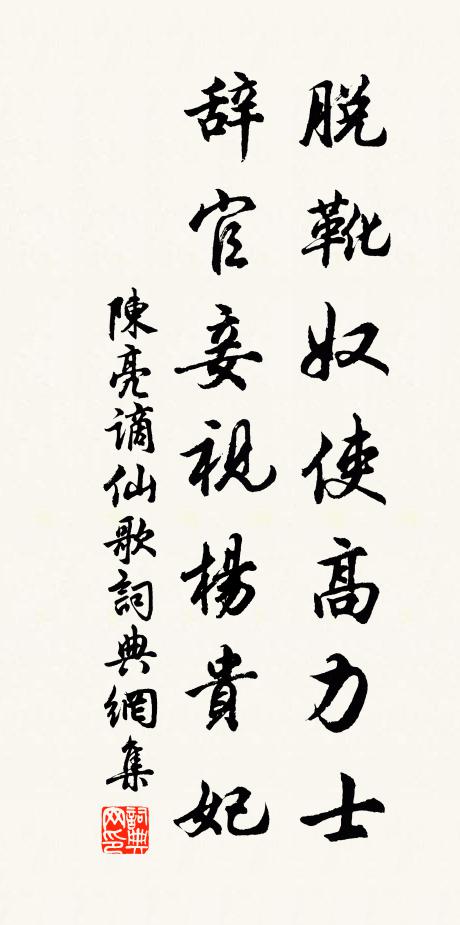 脫靴奴使高力士
辞官妾視楊貴妃
陳亮謫仙歌詞典網集
詞典网印